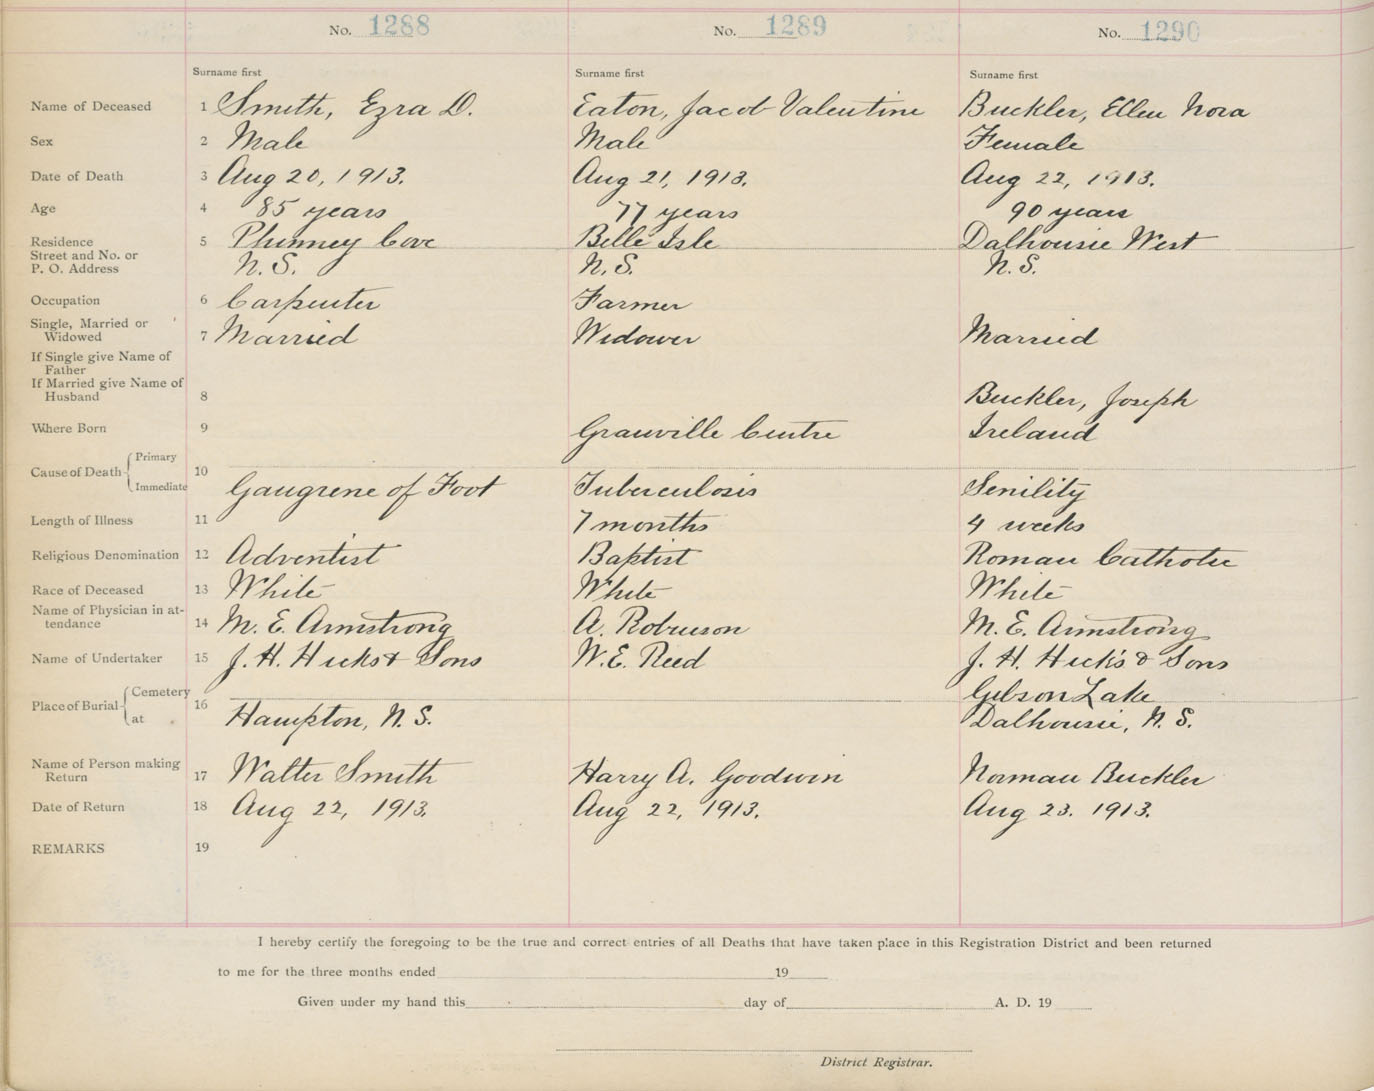 No. 1288 No. 1289 No. 1290
Surname first Surname first Surname first
Name of Deceased 1 Smith, Ezra D. Eaton, Jacob Valentine Buckler, Ellen Nora
Sex 2 Male Male Female
Date of Death 3 Aug 20, 1913. Aug 21, 1913. Aug 22, 1913.
Age 4 85 years 77 years 90 years
Residence 5 Phinney Cove Belle Isle Dalhousie West
Street and No. or
P. O. Address N. S. N. S. N. S.
Occupation 6 Carpenter Farmer
Single, Married or
Widowed 7 Married Widower Married
If Single give Name of
Father
If Married give Name of
Husband 8 Buckler, Joseph
Where Born 9 Granville Centre Ireland
Cause of Death Primary 10
Immediate Gangrene of Foot Tuberculosis Senility
Length of Illness 11 7 months 4 weeks
Religious Denomination 12 Adventist Baptist Roman Catholic
Race of Deceased 13 White White White
Name of Physician in at-
tendance 14 M. E. Armstrong A. Robinson M. E. Armstrong
Name of Undertaker 15 J. H. Hicks & Sons W. E. Reed J. H. Hicks & Sons
Place of Burial Cemetery 16 Gibson Lake
at Hampton, N. S. Dalhousie, N. S.
Name of Person making
Return 17 Walter Smith Harry A. Goodwin Norman Buckler
Date of Return 18 Aug 22, 1913. Aug 22, 1913. Aug 23. 1913.
REMARKS 19
I hereby certify the foregoing to be the true and correct entries of all Deaths that have taken place in this Registration District and been returned
to me for the three months ended 19
Given under my hand this day of A. D. 19
District Registrar.